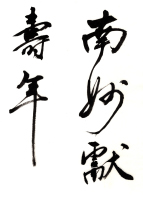 南妙獻
壽年